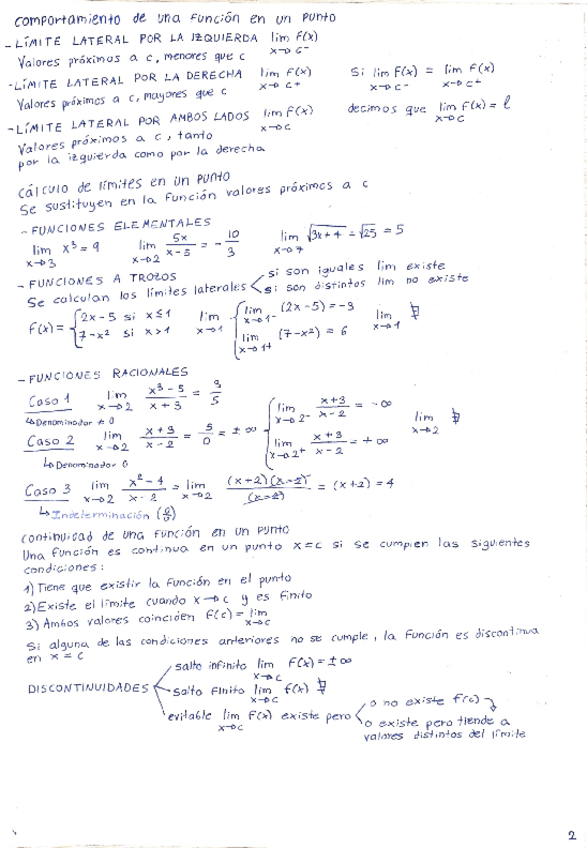 comportamiento de una función en un punto
- LÍMITE LATERAL POR LA IZQUIERDA lim f(x) x→c⁻
Valores próximos a c, menores que c
- LÍMITE LATERAL POR LA DERECHA lim f(x) x→c⁺
Valores próximos a c, mayores que c
Si lim f(x) x→c⁻ = lim f(x) x→c⁺
decimos que lim f(x) = ℓ x→c
- LÍMITE LATERAL POR AMBOS LADOS lim f(x) x→c
Valores próximos a c, tanto
por la izquierda como por la derecha
cálculo de límites en un punto
Se sustituyen en la función valores próximos a c
- FUNCIONES ELEMENTALES
lim x→3 x³ = 9 lim x→2 5x/(x-5) = -10/3 lim x→7 √(3x+4) = √25 = 5
- FUNCIONES A TROZOS
Se calculan los límites laterales
si son iguales lim existe
si son distintos lim no existe
f(x) = { 2x-5 si x≤1
7-x² si x>1
lim x→1 { lim x→1⁻ (2x-5) = -3
lim x→1⁺ (7-x²) = 6
lim x→1 ∄
- FUNCIONES RACIONALES
Caso 1 lim x→2 (x³-5)/(x+3) = 3/5
↳ Denominador ≠ 0
Caso 2 lim x→2 (x+3)/(x-2) = 5/0 = ±∞ { lim x→2⁻ (x+3)/(x-2) = -∞
lim x→2⁺ (x+3)/(x-2) = +∞
lim x→2 ∄
↳ Denominador 0
Caso 3 lim x→2 (x²-4)/(x-2) = lim x→2 (x+2)(x-2)/(x-2) = (x+2) = 4
↳ Indeterminación (0/0)
continuidad de una función en un punto
Una función es continua en un punto x=c si se cumplen las siguientes
condiciones:
1) Tiene que existir la función en el punto
2) Existe el límite cuando x→c y es finito
3) Ambos valores coinciden f(c) = lim x→c
Si alguna de las condiciones anteriores no se cumple, la función es discontinua
en x = c
DISCONTINUIDADES
salto infinito lim x→c f(x) = ±∞
salto finito lim x→c f(x) ∄
evitable lim x→c f(x) existe pero
o no existe f(c)
o existe pero tiende a
valores distintos del límite
2